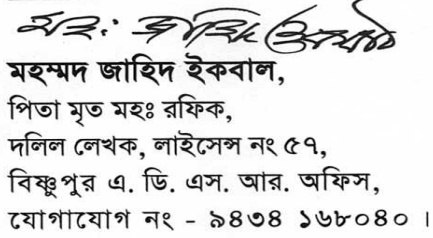 মহঃ জাহিদ ইকবাল
মহম্মদ জাহিদ ইকবাল,
পিতা মৃত মহঃ রফিক,
দলিল লেখক, লাইসেন্স নং ৫৭,
বিষ্ণুপুর এ. ডি. এস. আর. অফিস,
যোগাযোগ নং - ৯৪৩৪ ১৬৮০৪০ ।